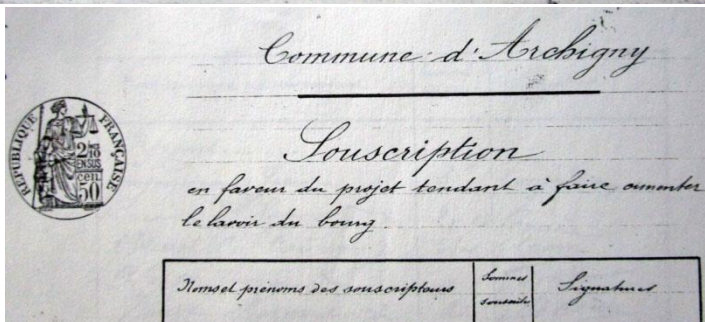 Commune d'Archigny
RÉPUBLIQUE FRANÇAISE
2/10
EN SUS
50 cen
Souscription
en faveur du projet tendant à faire cimenter
le lavoir du bourg
Noms et prénoms des souscripteurs
Sommes
souscrites
Signatures